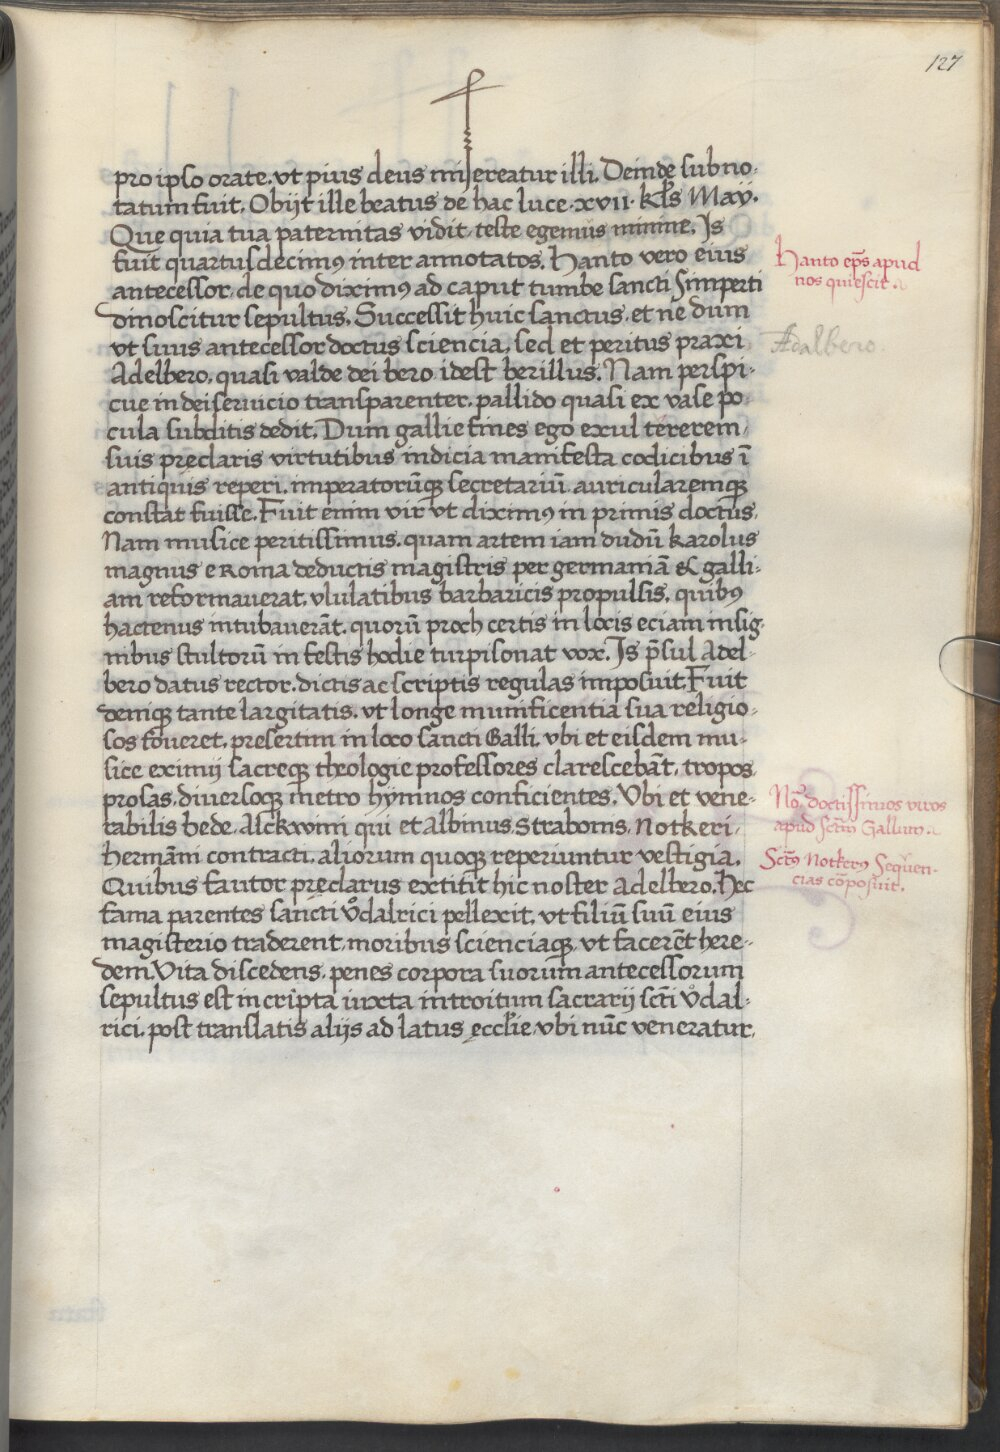 127
pro ipso orate. vt pius deus misereatur illi. Deinde subno-
tatum fuit. Obijt ille beatus de hac luce xvii kl̄s Maÿ.
Que quia tua paternitas vidit teste egemus minime. Is
fuit quartusdecimꝰ inter annotatos. Hanto vero eius
antecessor, de quo diximꝰ ad caput tumbe sancti Simperti
dinoscitur sepultus. Successit huic sanctus et ne dum
vt suus antecessor doctus sciencia, sed et peritus praxi
Adelbero, quasi valde dei bero idest berillus. Nam perspi-
cue in dei seruicio transparenter, pallido quasi ex vase po
cula subditis dedit. Dum gallie fines ego exul tererem,
suis pręclaris virtutibus indicia manifesta codicibus ī
antiquis reperi. imperatorūqꝫ secretariū auricularemqꝫ
constat fuisse. Fuit enim vir vt diximꝰ in primis doctus,
Nam musice peritissimus. quam artem iam dudū karolus
magnus e Roma deductis magistris per germaniā & galli-
am reformauerat, vlulatibus barbaricis propulsis, quibꝰ
hactenus intubauerāt. quorū proch certis in locis eciam insig-
nibus stultorū in festis hodie turpisonat vox. Is p̄sul Adel-
bero datus rector. dictis ac scriptis regulas imposuit. Fuit
deniqꝫ tante largitatis, vt longe munificentia sua religio-
sos foueret, presertim in loco sancti Galli, vbi et eisdem mu-
sice eximij sacreqꝫ theologie professores clarescebāt, tropos
prosas, diuersoqꝫ metro hÿmnos conficientes. Vbi et vene-
rabilis bede, Alckwini qui et Albinus, Strabonis, Notkeri,
hermāni contracti, aliorum quoqꝫ reperiuntur vestigia.
Quibus fautor pręclarus extitit hic noster Adelbero. Hec
fama parentes sancti vͦdalrici pellexit, vt filiū suū eius
magisterio traderent, moribus scienciaqꝫ vt facerēt here-
dem. Vita discedens, penes corpora suorum antecessorum
sepultus est in cripta iuxta introitum sacrarij scti vͦdal-
rici. post translatis alijs ad latus ęcclīe vbi nūc veneratur.
Hanto ep̄s apud
nos quiescit.
Adalbero.
No. doctissimos viros
apud sctm̄ Gallum.
Sctꝰ Notkerꝰ Sequen-
cias cōposuit.